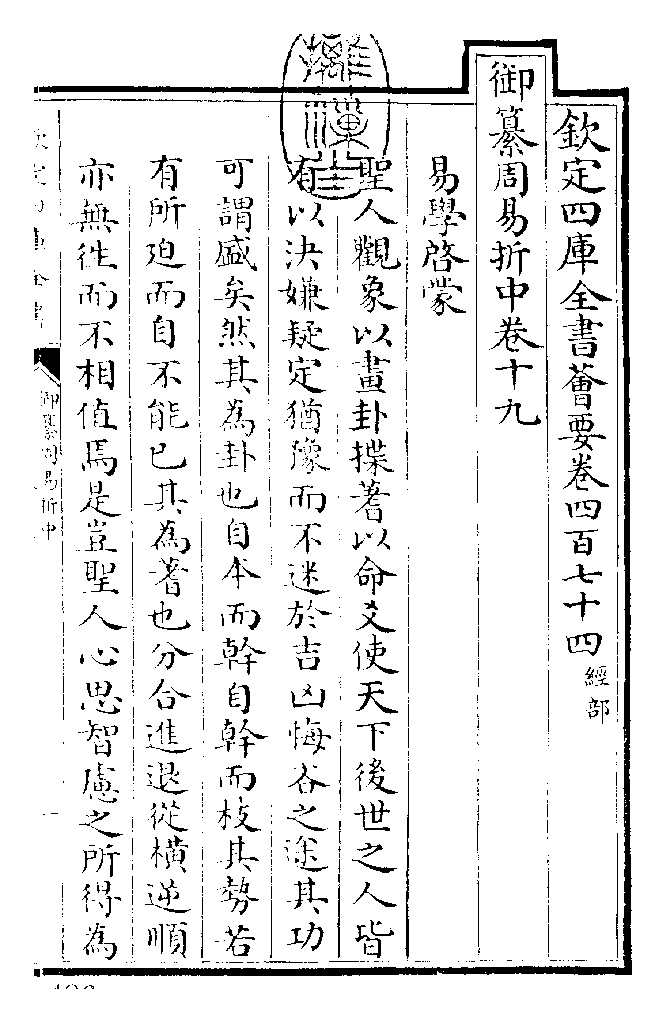 欽定四庫全書薈要卷四百七十四 經部
御纂周易折中卷十九
易學啓蒙
聖人觀象以畫卦揲蓍以命爻使天下後世之人皆
有以決嫌疑定猶豫而不迷於吉凶悔吝之途其功
可謂盛矣然其為卦也自本而幹自幹而枝其勢若
有所迫而自不能已其為蓍也分合進退從橫逆順
亦無往而不相值焉是豈聖人心思智慮之所得為
御纂周易折中